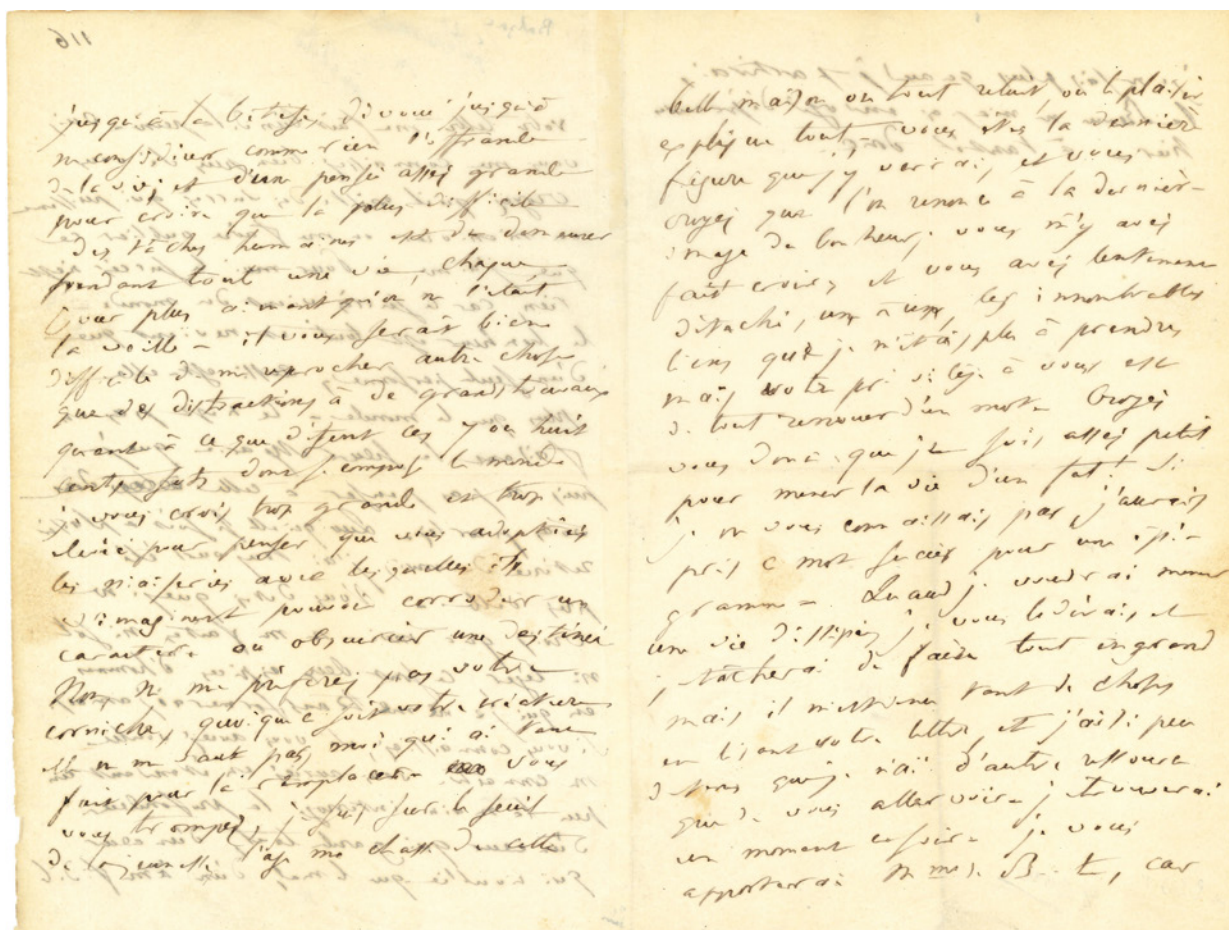 116
jusqu'à la bêtise, dévoué jusqu'à
ne considérer comme rien l'offrande
de la vie, et d'une pensée assez grande
pour croire que la plus difficile
des tâches humaines est de demeurer
pendant toute une vie, chaque
jour plus aimant qu'on ne l'était
la veille – il vous serait bien
difficile de me reprocher autre chose
que des distractions à de grands travaux
quant à ce que disent ces 7 ou huit
cents sots dont se compose le monde
je vous crois trop grande et trop
élevée pour penser que vous adoptiez
les niaiseries avec lesquelles ils
s'imaginent pouvoir corroder un
caractère ou obscurcir une destinée
Non ne me préférez pas votre
corniche, quoique ce soit votre créature
elle ne me vaut pas, moi qui ai tant
fait pour la remplacer – vous
vous trompez, je suis sur le seuil
de la jeunesse l'âge me chasse de cette
belle maison où tout reluit, où le plaisir
explique tout, vous êtes la dernière
figure que j'y verrai, et vous
croyez que l'on renonce à la dernière
image de bonheur, vous m'y avez
fait croire, et vous avez lentement
détaché, un à un, les innombrables
liens que je n'étais plus à prendre
mais votre privilège à vous est
de tout renouer d'un mot – Croyez
vous donc que je sois assez petit
pour mener la vie d'un fat! Si
je ne vous connaissais pas j'aurais
pris ce mot succès pour une épi-
gramme – Quand je voudrai mener
une vie dissipée, je vous le dirai, et
je tâcherai de faire tout en grand
mais il m'est venu tant de choses
en lisant votre lettre, et j'ai si peu
de tems que je n'ai d'autre ressource
que de vous aller voir – je trouverai
un moment ce soir – je vous
apporterai Mme de B...t, car